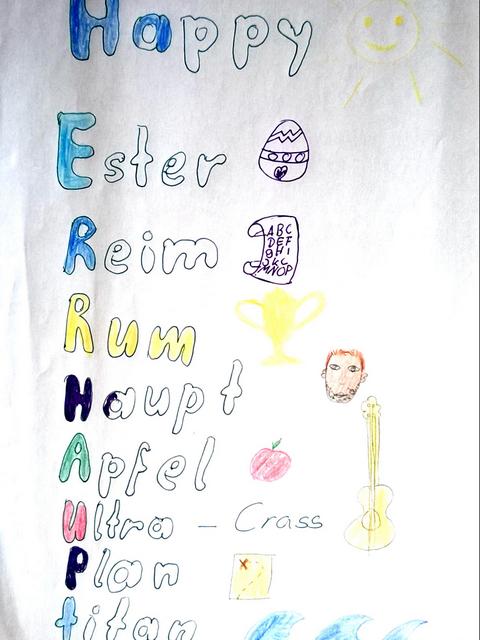 Happy
Ester
Reim
ABC
DEF
GHI
JKL
MNOP
Rum
Haupt
Apfel
Ultra - Crass
Plan
titan